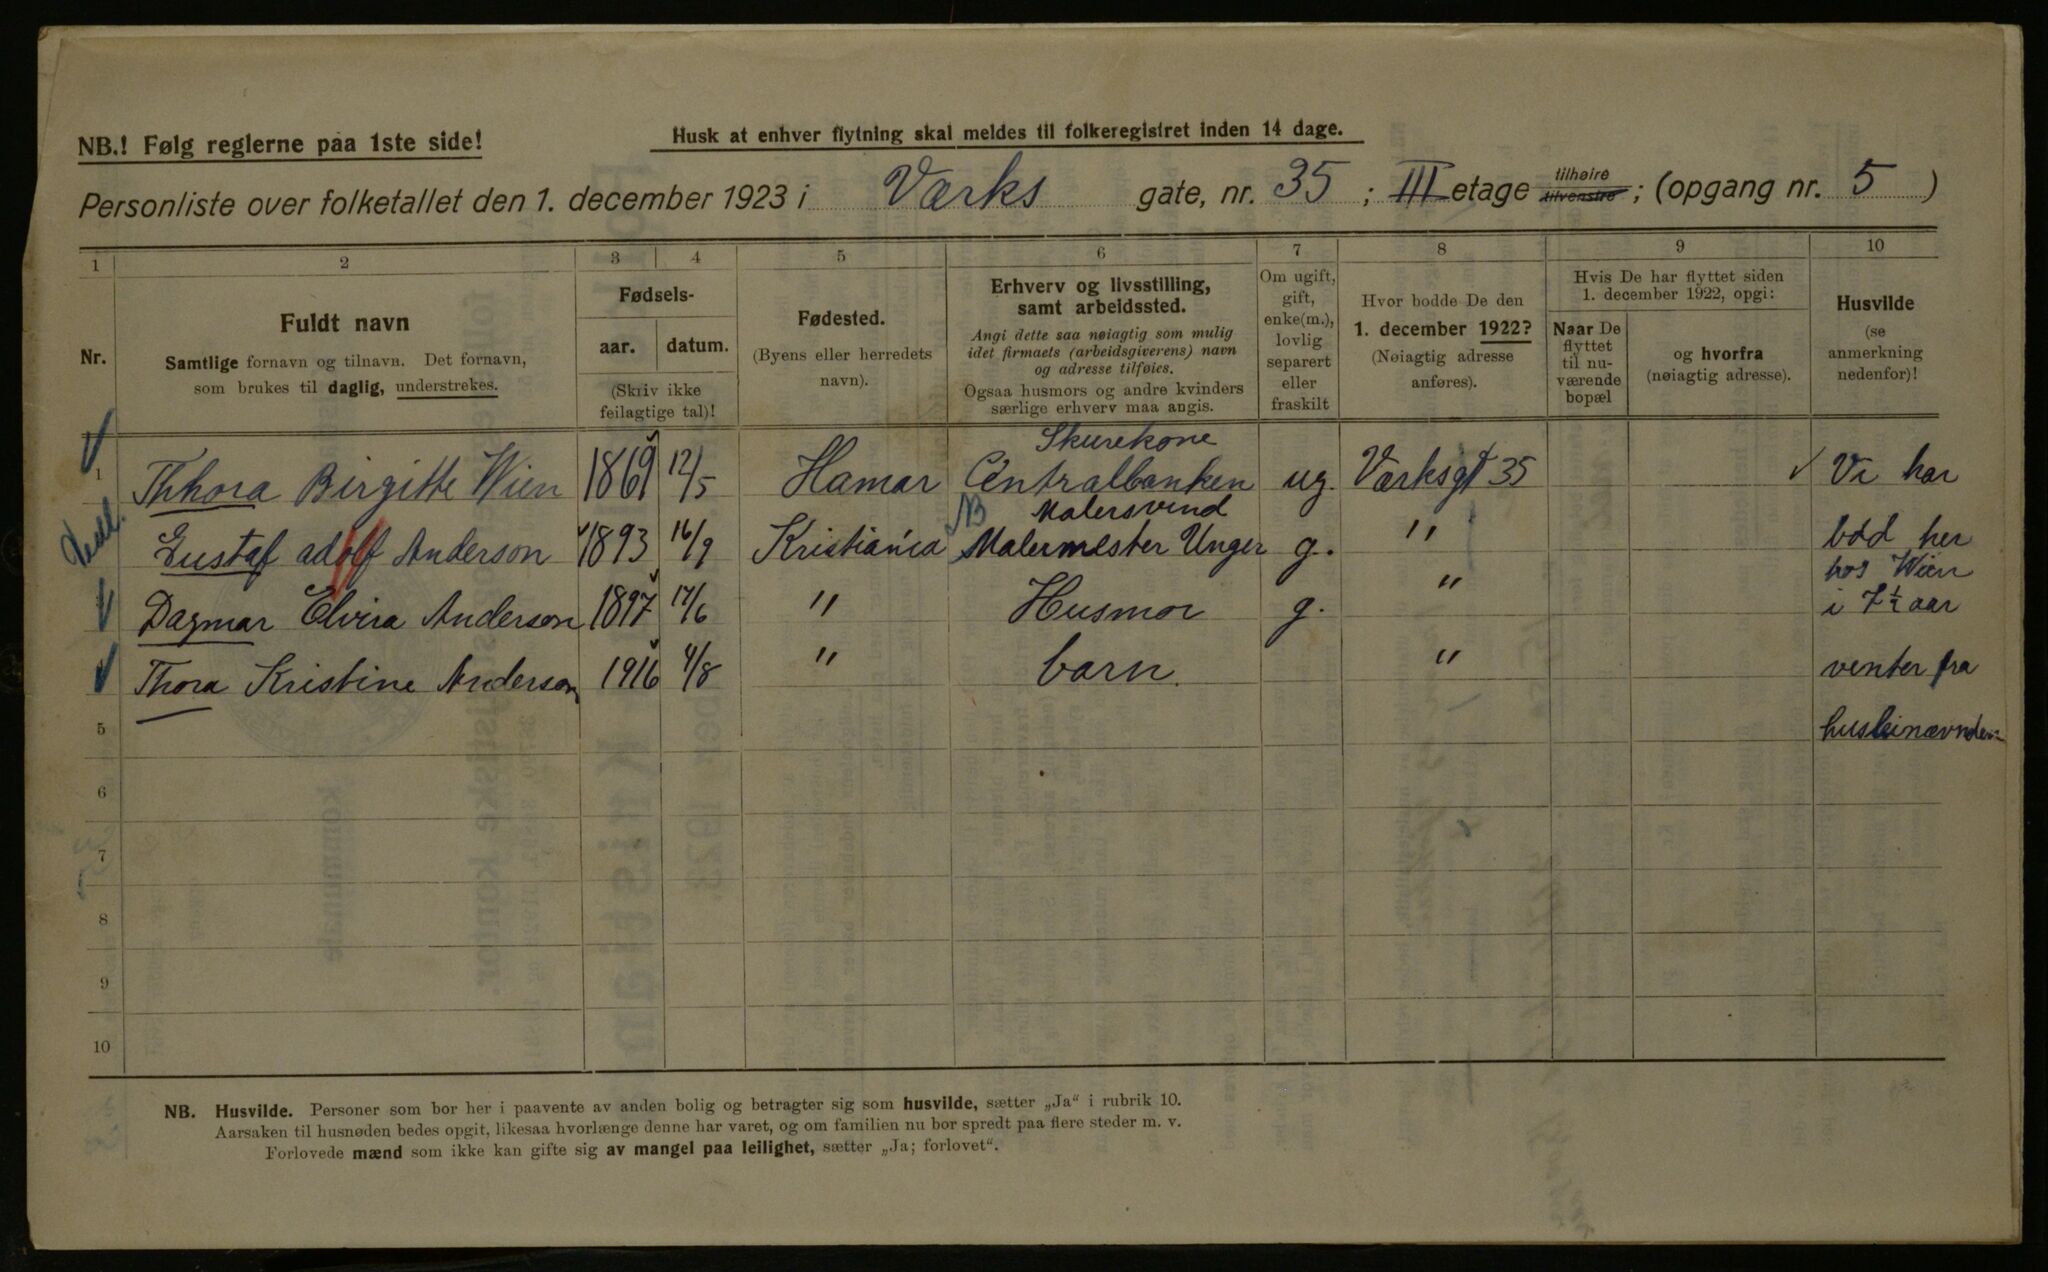 NB.! Følg reglerne paa 1ste side!
Husk at enhver flytning skal meldes til folkeregistret inden 14 dage.
Personliste over folketallet den 1. december 1923 i Værks gate, nr. 35 ; III etage tilhøire tilvenstre ; (opgang nr. 5 )
1 2 3 4 5 6 7 8 9 10
Nr.
Fuldt navn
Samtlige fornavn og tilnavn. Det fornavn,
som brukes til daglig, understrekes.
Fødsels-
aar. datum.
(Skriv ikke
feilagtige tal)!
Fødested.
(Byens eller herredets
navn).
Erhverv og livsstilling,
samt arbeidssted.
Angi dette saa nøiagtig som mulig
idet firmaets (arbeidsgiverens) navn
og adresse tilføies.
Ogsaa husmors og andre kvinders
særlige erhverv maa angis.
Om ugift,
gift,
enke(m.),
lovlig
separert
eller
fraskilt
Hvor bodde De den
1. december 1922?
(Nøiagtig adresse
anføres).
Hvis De har flyttet siden
1. december 1922, opgi:
Naar De
flyttet
til nu-
værende
bopæl
og hvorfra
(nøiagtig adresse).
Husvilde
(se
anmerkning
nedenfor)!
Skurekone
1 Thhora Birgitte Wien 1869 12/5 Hamar Centralbanken ug. Værksgt 35 Vi har
NB Malersvend
Gustaf adolf Anderson 1893 16/9 Kristiania Malermester Unger g. " bod her
hos Wien
Dagmar Elvira Anderson 1897 17/6 " Husmor g. " i 7 1/2 aar
Thora Kristine Anderson 1916 4/8 " barn. " venter fra
5 husleinævnden
6
7
8
9
10
NB. Husvilde. Personer som bor her i paavente av anden bolig og betragter sig som husvilde, sætter „Ja“ i rubrik 10.
Aarsaken til husnøden bedes opgit, likesaa hvorlænge denne har varet, og om familien nu bor spredt paa flere steder m. v.
Forlovede mænd som ikke kan gifte sig av mangel paa leilighet, sætter „Ja; forlovet“.